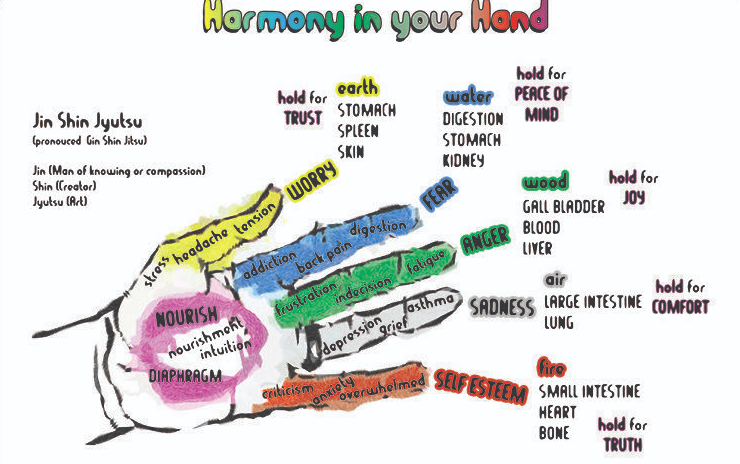 Harmony in your Hand
Jin Shin Jyutsu
(pronouced Gin Shin Jitsu)
Jin (Man of knowing or compassion)
Shin (Creator)
Jyutsu (Art)
hold for
TRUST
earth
STOMACH
SPLEEN
SKIN
WORRY
stress headache tension
water
DIGESTION
STOMACH
KIDNEY
hold for
PEACE OF
MIND
FEAR
addiction back pain digestion
wood
GALL BLADDER
BLOOD
LIVER
hold for
JOY
ANGER
frustration indecision fatigue
air
LARGE INTESTINE
LUNG
hold for
COMFORT
SADNESS
depression grief asthma
fire
SMALL INTESTINE
HEART
BONE
hold for
TRUTH
SELF ESTEEM
criticism anxiety overwhelmed
NOURISH
nourishment
intuition
DIAPHRAGM